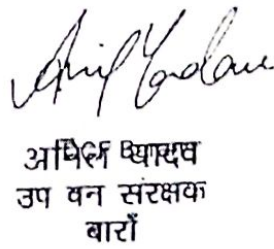 Anil Yadav
अनिल यादव
उप वन संरक्षक
बाराँ